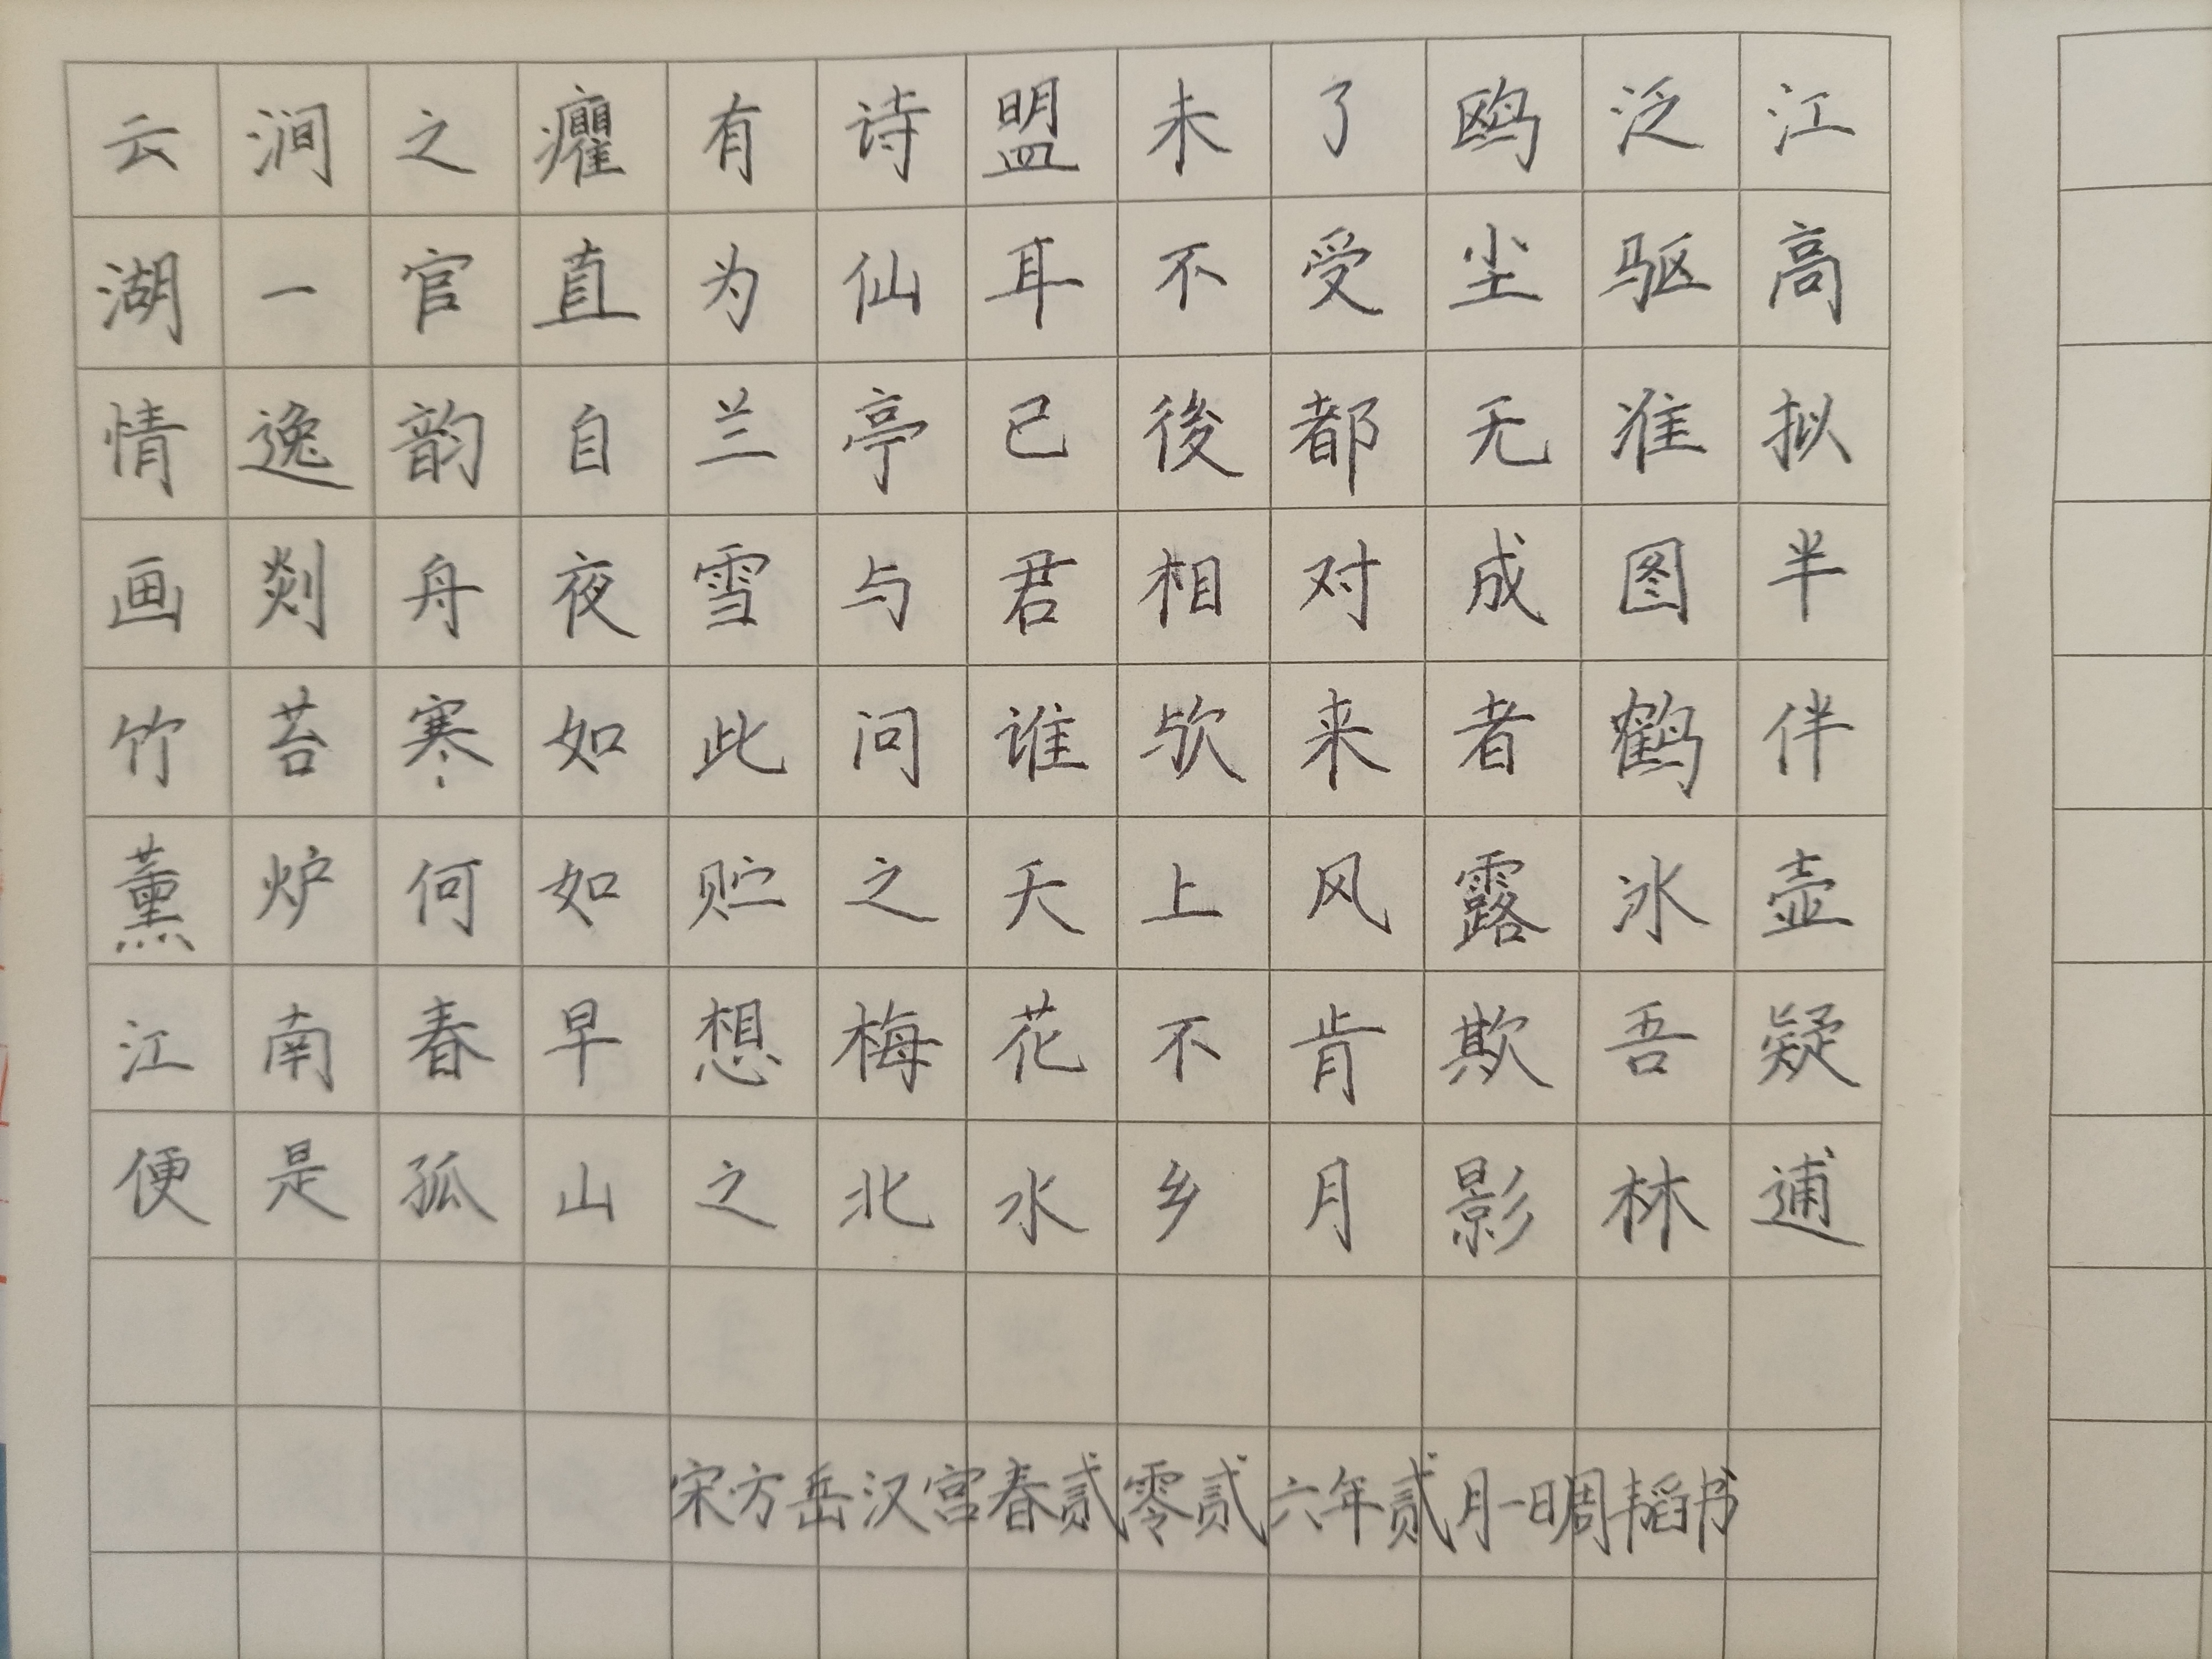 云涧之癯有诗盟未了鸥泛江
湖一官直为仙耳不受尘驱高
情逸韵自兰亭已後都无准拟
画剡舟夜雪与君相对成图半
竹苔寒如此问谁欤来者鹤伴
薰炉何如贮之天上风露冰壶
江南春早想梅花不肯欺吾疑
便是孤山之北水乡月影林逋
宋方岳汉宫春贰零贰六年贰月一日周韬书